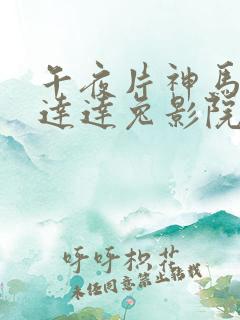 午夜片神马
达达兔影院
呼呼枳花
未经同意禁止转载